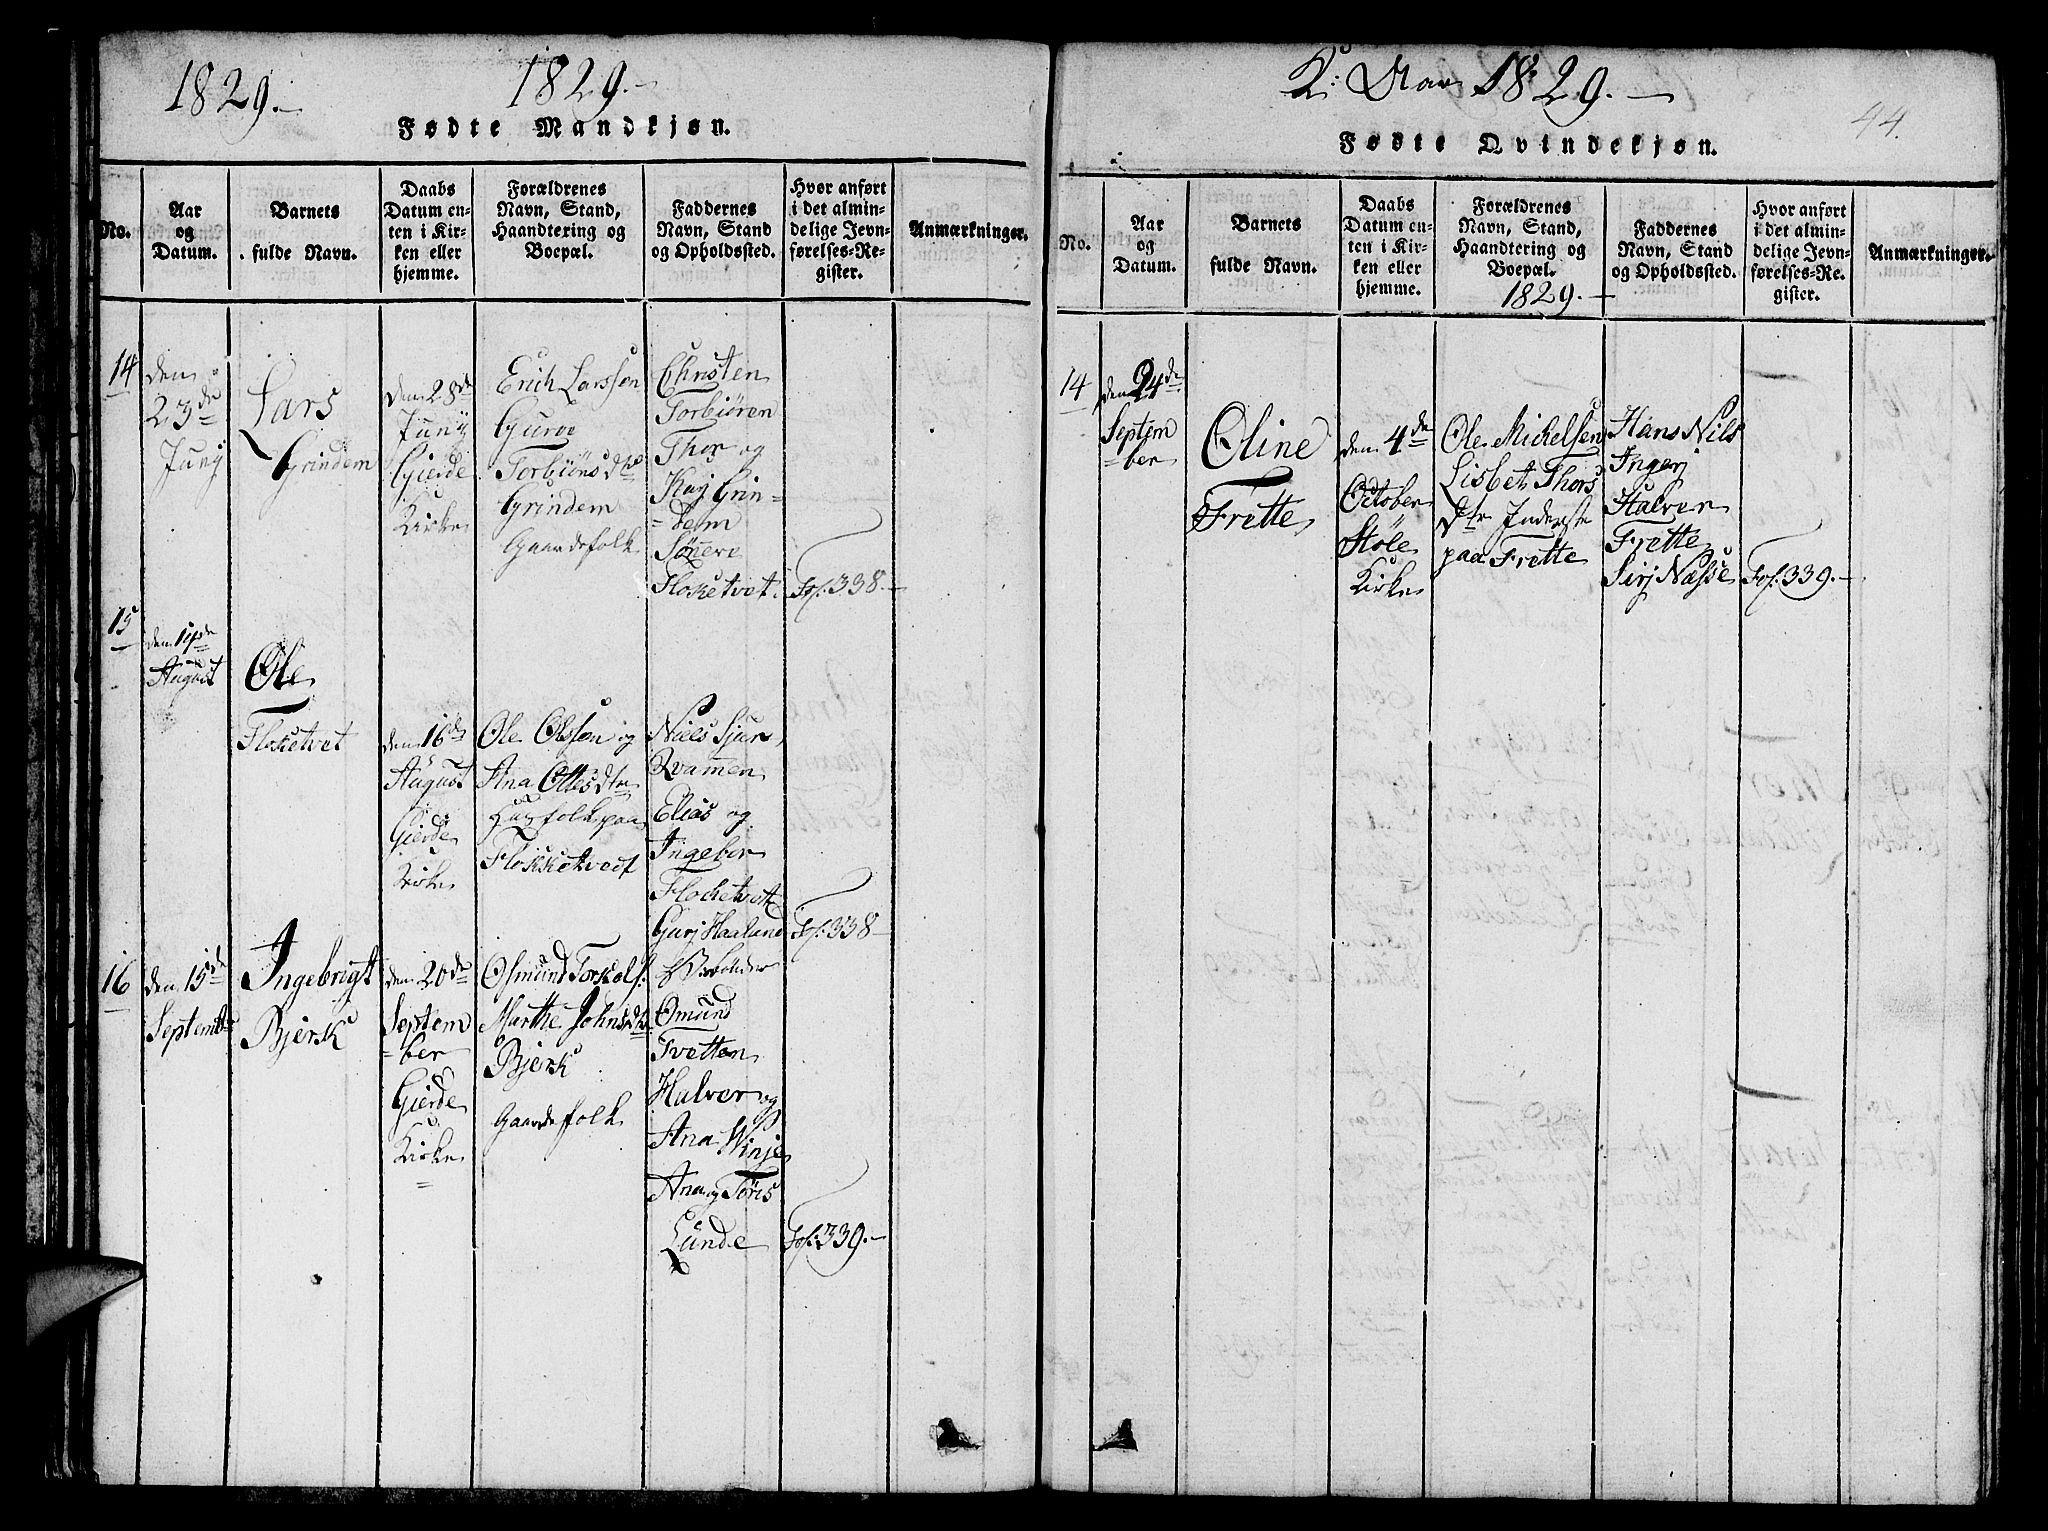 1829.-
1829.-
Fødte Mandkjøn.
No.
Aar
og
Datum.
Barnets
fulde Navn.
Daabs
Datum en-
ten i Kir-
ken eller
hjemme.
Forældrenes
Navn, Stand,
Haandtering og
Boepæl.
Faddernes
Navn, Stand
og Opholdssted.
Hvor anført
i det almin-
delige Jevn-
førelses-Re-
gister.
Anmærkninger.
14
den
23de
Junj
Lars
Grindem
den 28de
Junj
Gierde
Kirke
Erich Larssen
Guroe
Torbiønsdtr
Grindem
Gaardefolk
Christen
Torbiøren
Thor og
Karj Grin=
=dem
Sønneve
Floketvet.
Fol. 338.-
15
August
Ole
Floketvet
den 16de
August
Gierde
Kirke
Ole Olssen og
Ana Ottesdtr
Husfolk paa
Flokketvedt
Niels Sjurs,
Qvamen
Elias og
Ingebor
Flocketvett
Gurj Haaland
Fol. 338-
16
den 15de
Septembr
Ingebrigt
Bjerk
den 20de
Septem
=ber
Gierde
Kirke
Osmund Torkels:
Marthe Johnsdtr
Bjerk
Gaardefolk
Omund
Tvetten
Halver og
Ana Winje
Ana og Tøris
Lunde
Fol. 339.-
1829.-
44.
Fødte Qvindekjøn.
No.
Aar
og
Datum.
Barnets
fulde Navn.
Daabs
Datum en-
ten i Kir-
ken eller
hjemme.
Forældrenes
Navn, Stand,
Haandtering og
Boepæl.
1829.-
Faddernes
Navn, Stand,
og Opholdssted.
Hvor anført
i det almin-
delige Jevn-
førelses-Re-
gister.
Anmærkninger.
14
den 24de
Septem
=ber
Oline
Frette
den 4de
October
Støle
Kirke
Ole Mickelsen
Lisbet Thors
Dtr Inderste
paa Frette
Hans Nils
Ingerj
Halver
Frette
Sirj Næsse
Fol. 339.-